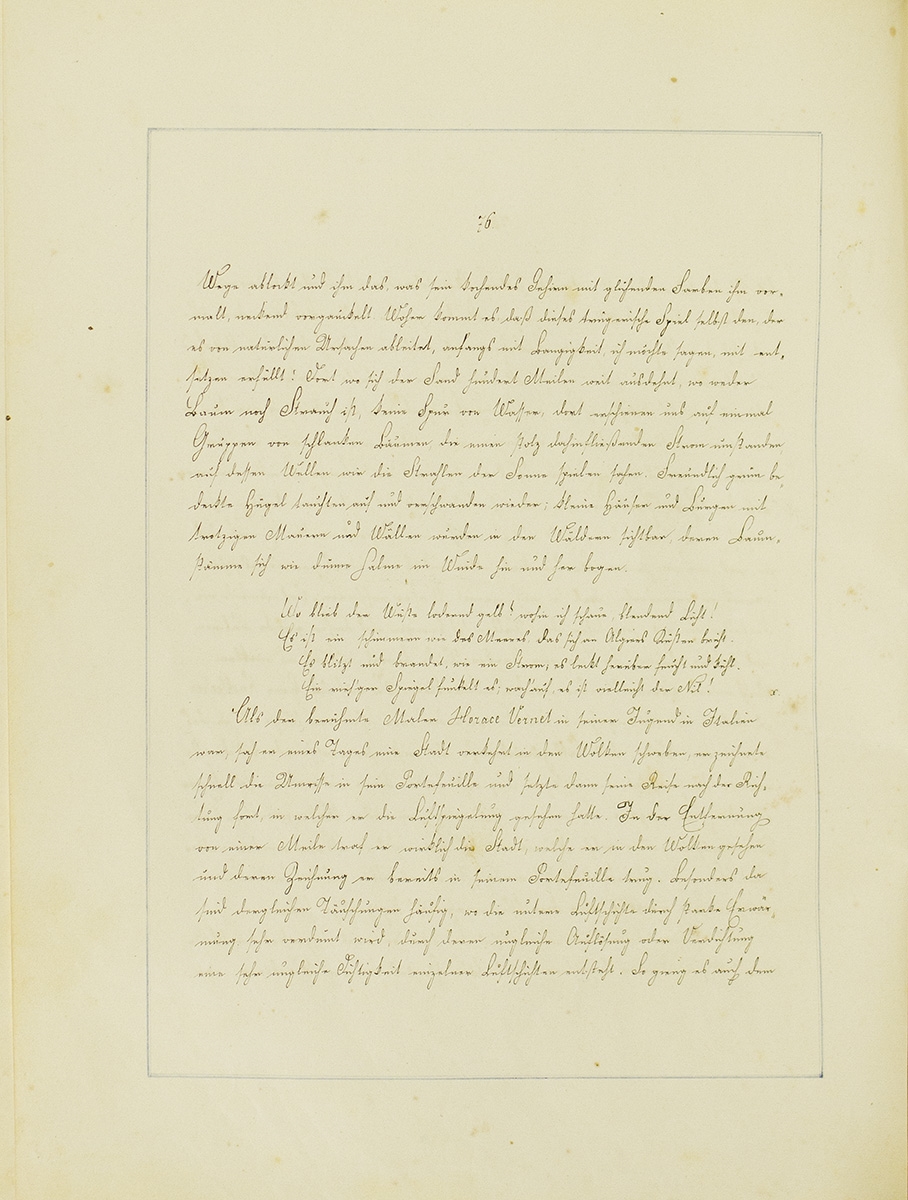 76.
Wege ablockt und ihm das, was sein kochendes Gehirn mit glühenden Farben ihm vor-
malt, neckend vorgauckelt. Woher kommt es daß dieses trügerische Spiel selbst den, der
es von natürlichen Ursachen ableitet, anfangs mit Bangigkeit, ich möchte sagen, mit ent-
setzen erfüllt! Dort wo sich der Sand hundert Meilen weit ausdehnt, wo weder
Baum noch Strauch ist, keine Spur von Wasser, dort erschienen uns auf einmal
Gruppen von schlanken Bäumen die einen stolz dahinfließenden Strom umstanden
auf dessen Wellen wir die Strahlen der Sonne spielen sahen. Freundlich grün be-
deckte Hügel tauchten auf und verschwanden wieder; kleine Häuser und Burgen mit
trotzigen Mauern und Wällen wurden in den Wäldern sichtbar, deren Baum-
stämme sich wie dünne Halme im Winde hin und her bogen.
Wo blieb der Wüste lodernd gelb? wohin ich schaue, blendend Licht!
Es ist ein schimmern wie des Meeres das sich an Algiers Küsten bricht.
Es blitzt und brandet, wie ein Strom; es leckt herüber feucht und kühl.
Ein ries'ger Spiegel funkelt es; wach' auf, es ist vielleicht der Nil!
Als der berühmte Maler Horace Vernet in seiner Jugend in Italien
war, sah er eines Tages eine Stadt verkehrt in den Wolken schweben, er zeichnete
schnell die Umrisse in sein Portefeuille und setzte dann seine Reise nach der Rich-
tung fort, in welcher er die Luftspiegelung gesehen hatte. In der Entfernung
von einer Meile traf er wirklich die Stadt, welche er in den Wolken gesehen
und deren Zeichnung er bereits in seinem Portefeuille trug. Besonders da
sind dergleichen Täuschungen häufig, wo die untere Luftschichte durch starke Erwär-
mung sehr verdünnt wird, durch deren ungleiche Auflösung oder Verdichtung
eine sehr ungleiche Dichtigkeit einzelner Luftschichten entsteht. So gieng es auch dem